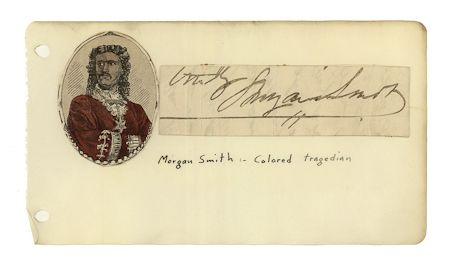 Morgan Smith
Morgan Smith :- Colored tragedian